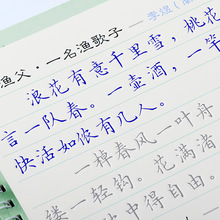 渔父·一名渔歌子 —— 李煜
浪花有意千里雪，桃花
言一队春。一壶酒，一竿
快活如侬有几人。
一棹春风一叶舟
缕一轻钩。花满渚
中得自由。